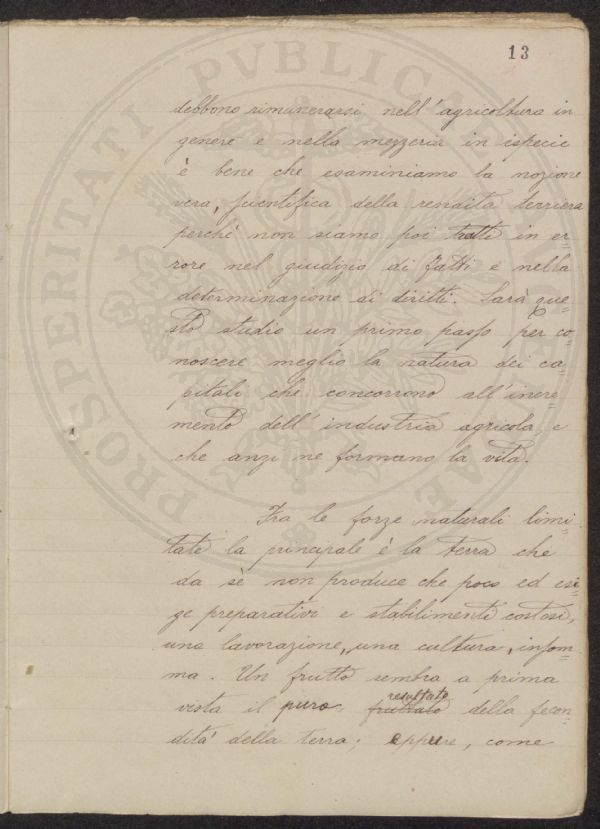 13
debbono rimunerarsi nell'agricoltura in
genere e nella mezzeria in ispecie
è bene che esaminiamo la nozione
vera, scientifica della rendita terriera
perchè non siamo poi tratti in er=
rore nel giudizio di fatti e nella
determinazione di diritti. Sarà que=
sto studio un primo passo per co=
noscere meglio la natura dei ca=
pitali che concorrono all'incre=
mento dell'industria agricola e
che anzi ne formano la vita.
Fra le forze naturali limi=
tate la principale è la terra che
da sè non produce che poco ed esi=
ge preparativi e stabilimenti costosi,
una lavorazione, una cultura, insom=
ma. Un frutto sembra a prima
resultato
vista il puro fruttato della fecon=
dità della terra; eppure, come
PROSPERITATI PVBLICAE